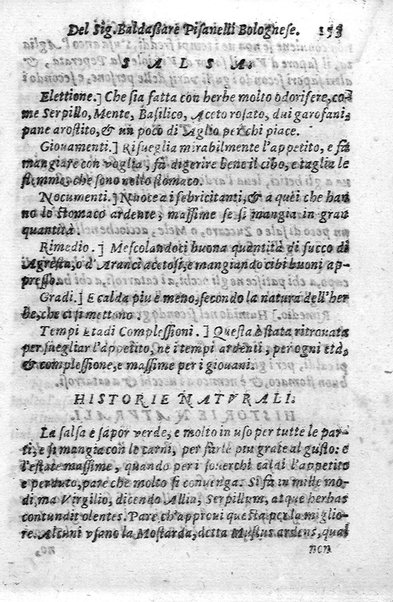 Del Sig. Baldassare Pisanelli Bolognese. 153
SALSA.
Elettione.] Che sia fatta con herbe molto odorifere, co-
me Serpillo, Mente, Basilico, Aceto rosato, dui garofani,
pane arostito, & un poco di Aglio per chi piace.
Giovamenti.] Risueglia mirabilmente l'appetito, e fà
mangiare con voglia, fà digerire bene il cibo, e taglia le
flemme, che sono nello stomaco.
Nocumenti.] Nuoce a i febricitanti, & a quei che han-
no lo stomaco ardente, massime se si mangia in gran
quantità.
Rimedio.] Mescolandoci buona quantità di succo di
Agresta, o d'Aranci acetosi, e mangiando cibi buoni ap-
presso.
Gradi.] E calda piu e meno, secondo la natura dell'her
be, che ci si mettono.
Tempi Etadi Complessioni.] Questa è stata ritrouata
per suegliar l'appetito, ne i tempi ardenti, per ogni età,
& complessione, e massime per i giouani.
HISTORIE NATVRALI.
La salsa e sapor verde, e molto in uso per tutte le par-
ti, e si mangia con le carni, per farle piu grate al gusto: e
l'estate massime, quando per i souerchi calai l'appetito
e perduto, pare che molto si conuenga. Si fà in mille mo-
di, ma Virgilio, dicendo Allia, Serpillum, atque herbas
contundit olentes. Pare ch'approui questa per la miglio-
re. Alcuni vsano la Mostarda, detta Mustus ardens, qual
non